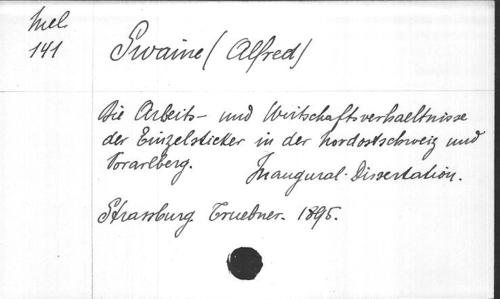 Mel.
141
Swaine (Alfred)
Die Arbeits- und Wirtschaftsverhaeltnisse
der Einzelsticker in der Nordostschweiz und
Vorarlberg. Inaugural-Dissertation.
Strassburg Truebner. 1895.